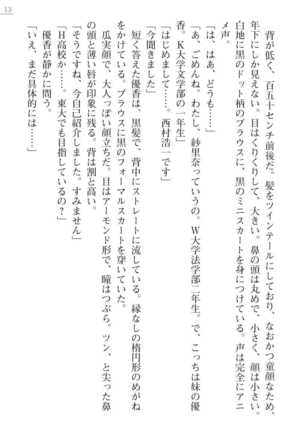 13
背が低く、百五十センチ前後だ。髪をツインテールにしており、なおかつ童顔なため、
年下にしか見えない。目はくりくりして、大きい。鼻の頭は丸めで、小さく、顔は小さい。
白地に黒のドット柄のブラウスに、黒のミニスカートを身につけている。声は完全にアニ
メ声。
「は、はあ、どうも……」
「あ、ごめんね。わたし、紗里奈っていうの。W大学法学部二年生。で、こっちは妹の優
香。K大学文学部の一年生」
「はじめまして……。西村浩一です」
「今聞きました」
短く答えた優香は、黒髪で、背中にストレートに流している。縁なしの楕円形のめがね
をかけている。ブラウスに黒のフォーマルスカートを穿いていた。
瓜実顔で、大人っぽい顔立ちだ。目はアーモンド形で、瞳はつぶら。ツン、と尖った鼻
の頭と薄い唇が印象に残る。背は割と高い。
「そうですね、今自己紹介しました。すみません」
「H高校か……。東大でも目指しているの？」
優香が静かに問う。
「いえ、まだ具体的には……」